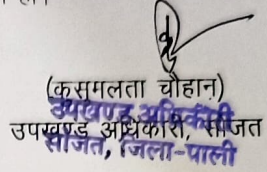 (कुसुमलता चौहान)
उपखण्ड अधिकारी
उपखण्ड अधिकारी, सोजत
सोजत, जिला-पाली